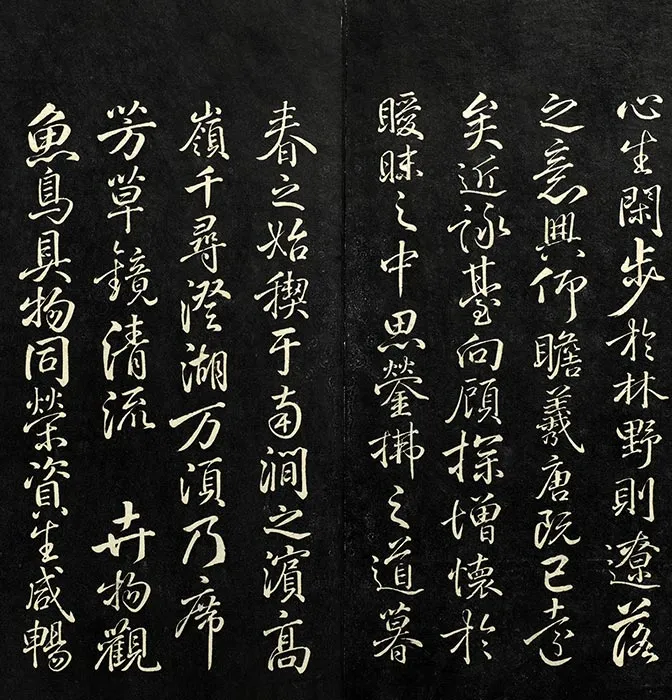 心生閑步於林野則遼落
之意興仰瞻羲唐既已遠
矣近詠臺向顧探增懷於
曖昧之中思鎣拂之道暮
春之始禊于南澗之濱高
嶺千尋澄湖万頃乃席
芳草鏡清流 卉物觀
魚鳥具物同榮資生咸暢